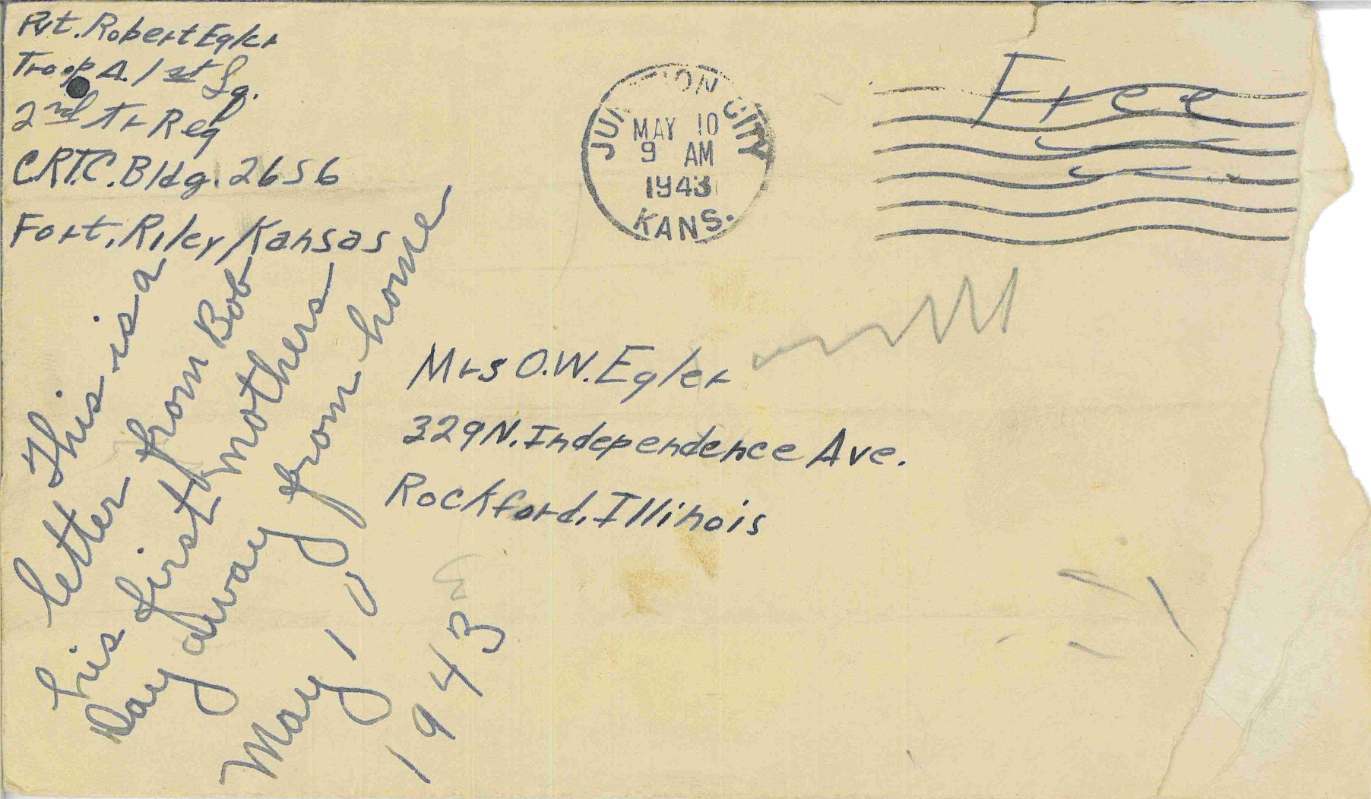 Pvt. Robert Egler
Troop A. 1st Sq.
2nd Tr Reg
C.R.T.C. Bldg. 2656
Fort, Riley, Kansas
JUNCTION CITY
MAY 10
9 AM
1943
KANS.
Free
Mrs O.W. Egler
329 N. Independence Ave.
Rockford, Illinois
This is a
letter from Bob
his first mothers
Day away from home
May 10
1943